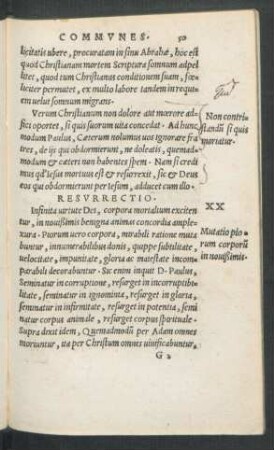 COMMVNES.
licitatis ubere, procuratam in sinu Abrahæ, hoc est
quod Christianam mortem Scriptura somnum adpel
litet, quod tum Christianus conditionem suam, fœ-
liciter permutet, ex multo labore tandem in requi
em uelut somnum migrans.
Verum Christianum non dolore aut mœrore ad-
fici oportet, si quis suorum uita concedat. Ad hunc
modum Paulus, Cæterum nolumus uos ignorare fra
tres, de ijs qui obdormierunt, ne doleatis, quemad-
modum & cæteri non habentes spem. Nam si credi
mus qd' iesus mortuus est & resurrexit, sic & Deus
eos qui obdormierunt per iesum, adducet cum illo.
Non contri-
standũ si quis
moriatur.
RESVRRECTIO.
XX
Infinita uirtute Dei, corpora mortalium exciten
tur, in nouissimis benigna animæ concordia ample-
xura. Porrum uero corpora, mirabili ratione muta
buntur, innumerabilibus donis, quippe subtilitate,
uelocitate, impunitate, gloria ac maiestate incom-
parabili decorabuntur. Sic enim inquit D. Paulus,
Seminatur in corruptione, resurget in incorruptibi-
litate, seminatur in ignominia, resurget in gloria,
seminatur in infirmitate, resurget in potentia, semi
natur corpus animale, resurget corpus spirituale.
Supra dixit idem, Quemadmodũ per Adam omnes
moriuntur, ita per Christum omnes uiuificabuntur.
Mutatio pio-
rum corporũ
in nouissimis.
G 2